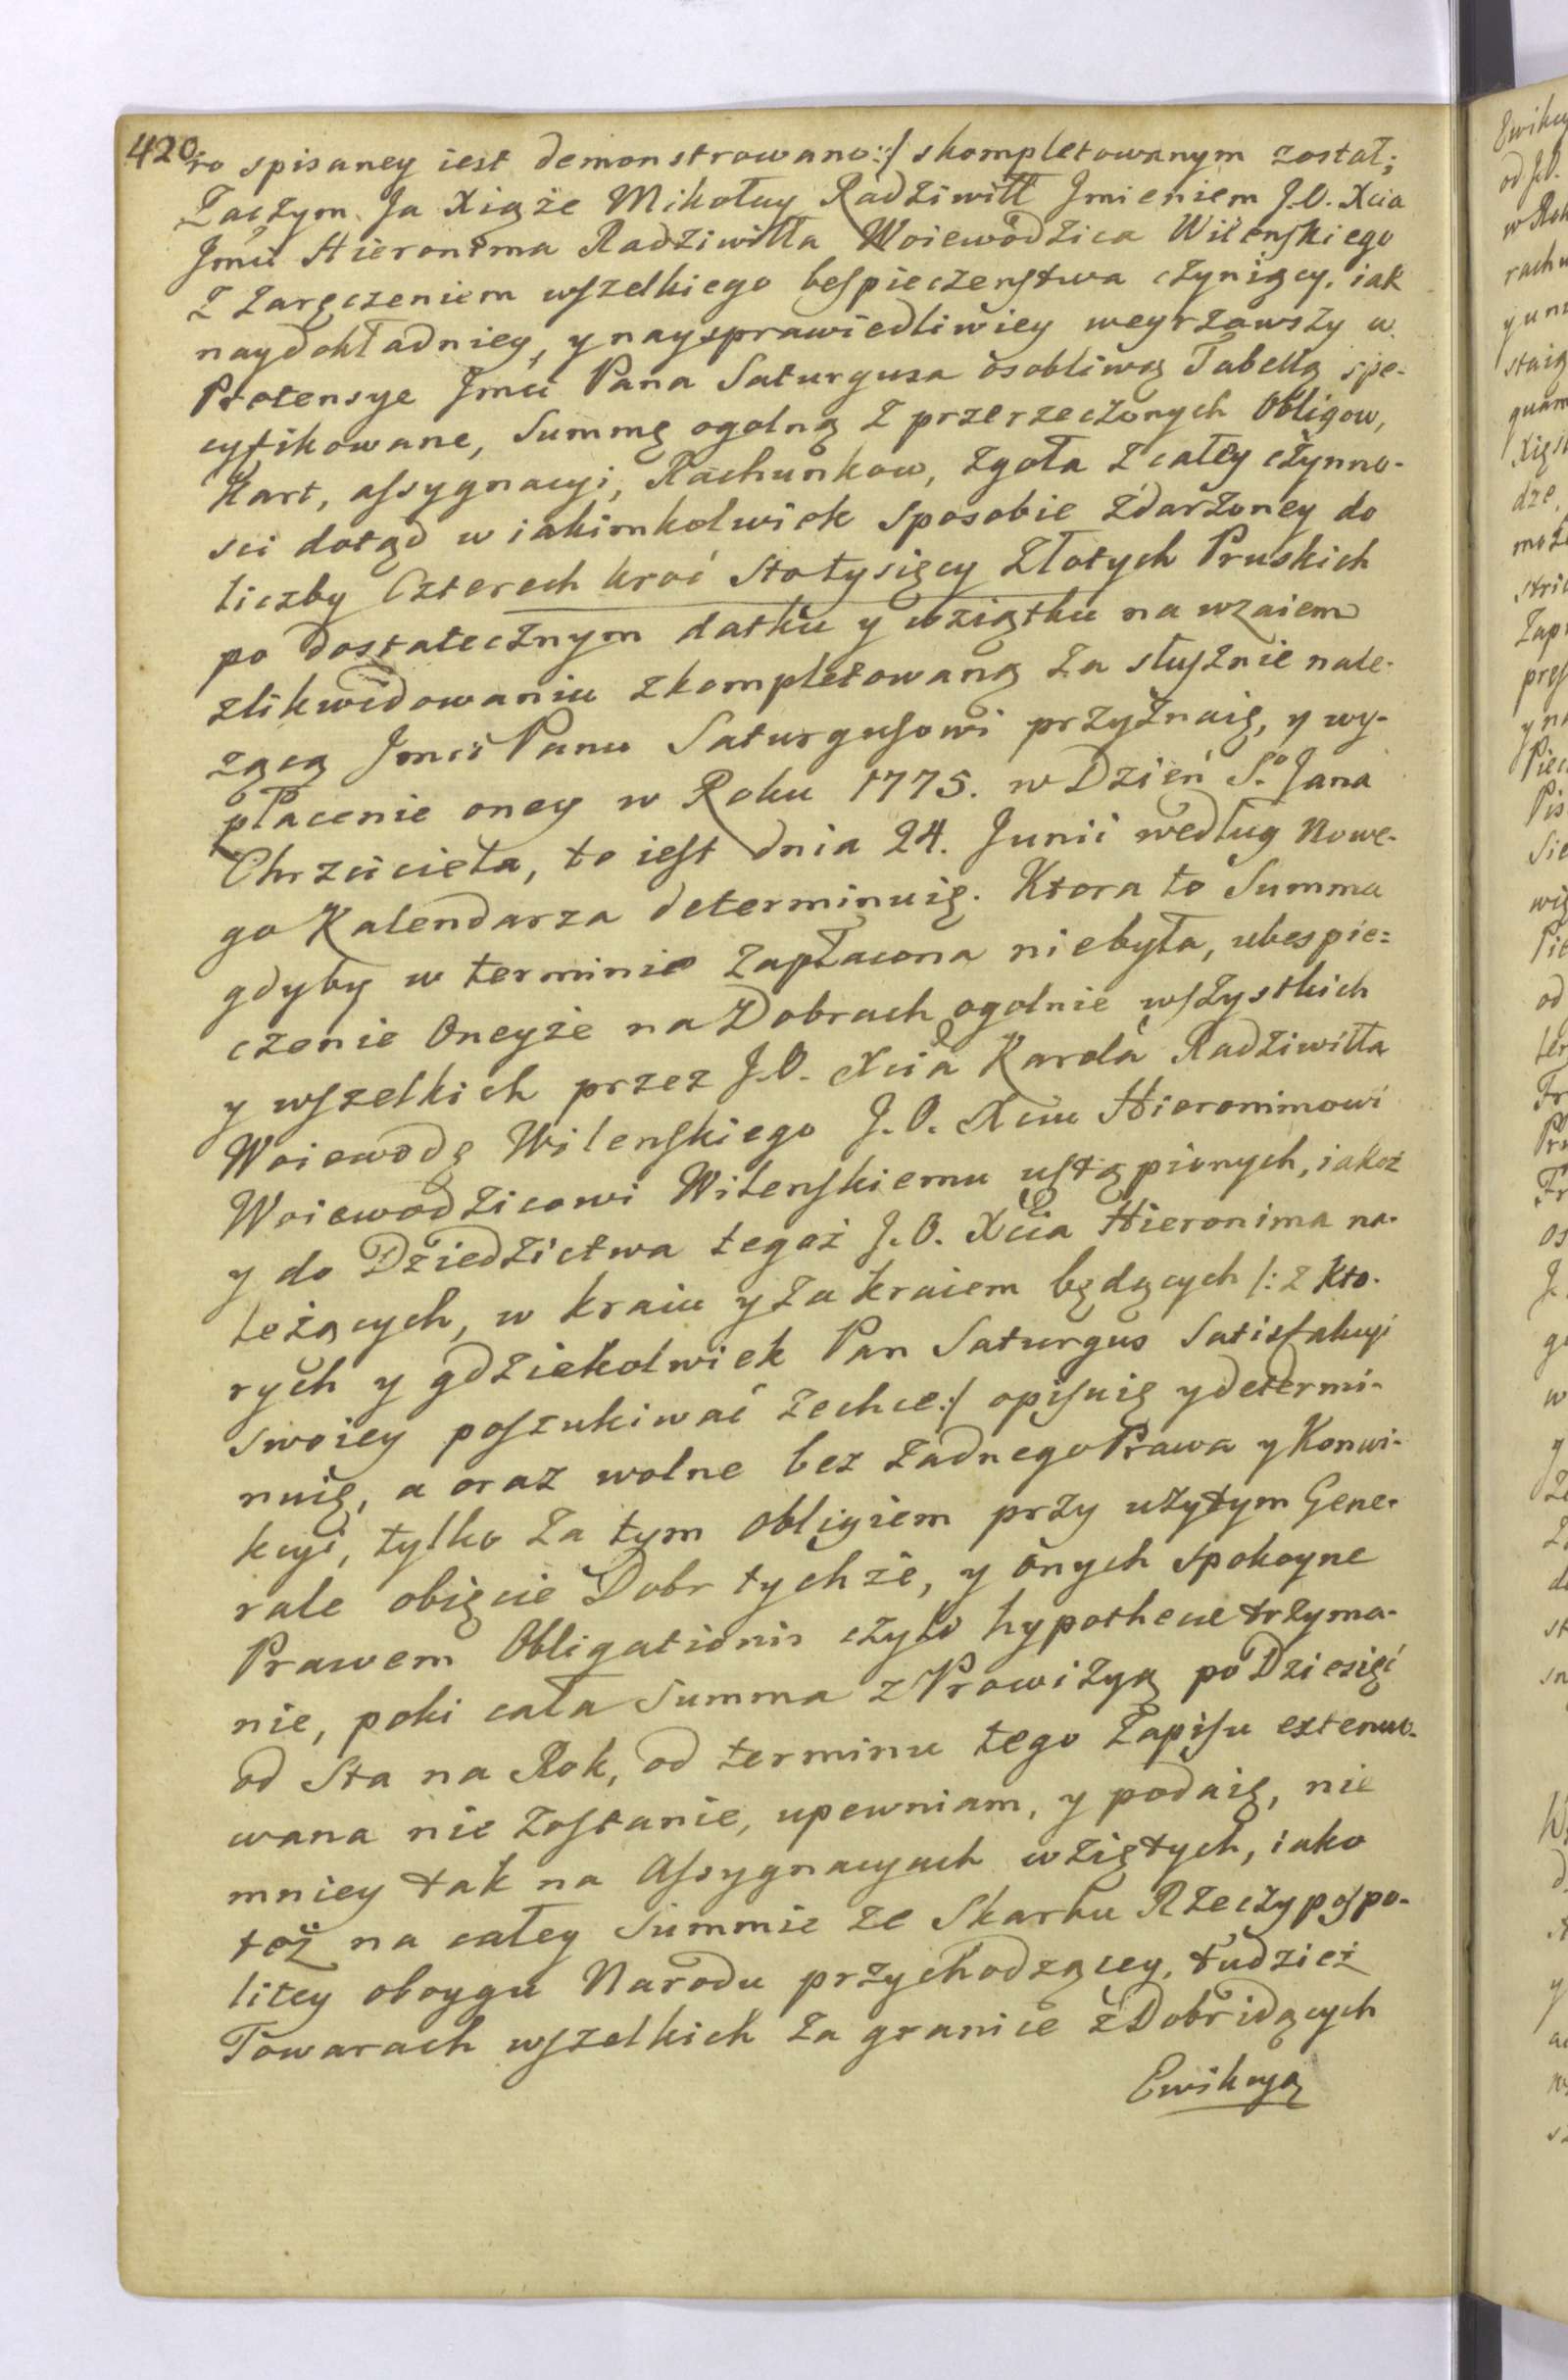 420
ro spisaney iest demonstrowano:/ skompletowanym został;
Zaczym Ja Xiąże Mikołay Radziwiłł Jmieniem J.O. Xcia
Jmći Hieronima Radziwiłła Woiewodzica Wileńskiego
z zaręczeniem wszelkiego bespieczeństwa czyniący, iak
naydokładniey, y naysprawiedliwiey weyrzawszy w
Pretensye Jmći Pana Saturgusa osobliwą Tabellą spe-
cyfikowane, Summę ogolną z przerzeczonych Obligow,
Kart, assygnacyi, Rachunkow, zgoła z całey czynno-
sci dotąd w iakimkolwiek sposobie zdarzoney do
liczby Czterech kroć Stotysięcy Złotych Pruskich
po dostatecznym datku y wziątku na wzaiem
zlikwidowaniu zkompletowaną za słusznie nale-
zącą Jmći Panu Saturgusowi przyznaię, y wy-
płacenie oney w Roku 1775. w Dzień S.o Jana
Chrzciciela, to iest dnia 24. Junii według Nowe-
go Kalendarza determinuię. Ktora to Summa
gdyby w terminie zapłacona niebyła, ubespie=
czenie Oneyże na Dobrach ogolnie wszystkich
y wszelkich przez J.O. Xcia Karola Radziwiłła
Woiewodę Wilenskiego J.O. Xciu Hieronimowi
Woiewodzicowi Wilenskiemu ustąpionych, iakoż
y do Dziedzictwa tegoż J.O. Xcia Hieronima na-
leżących, w kraiu y za kraiem będących /: z kto-
rych y gdziekolwiek Pan Saturgus Satisfakcyi
swoiey poszukiwać zechce:/ opisuię y determi-
nuię, a oraz wolne bez żadnego Prawa y Konwi-
kcyi, tylko za tym obligiem przy użytym Gene-
rale obięcie Dobr tychże, y onych spokoyne
Prawem Obligationis czyli hypothecae trzyma-
nie, poki cała Summa z Prowizyą po Dziesięć
od Sta na Rok, od terminu tego Zapisu extenuo-
wana nie zostanie, upewniam, y podaię, nie
mniey tak na Assygnacyach wziętych, iako
też na całey Summie ze Skarbu Rzeczypospo-
litey oboygu Narodu przychodzącey, tudzież
Towarach wszelkich za granice z Dobr idących
Ewikcyą